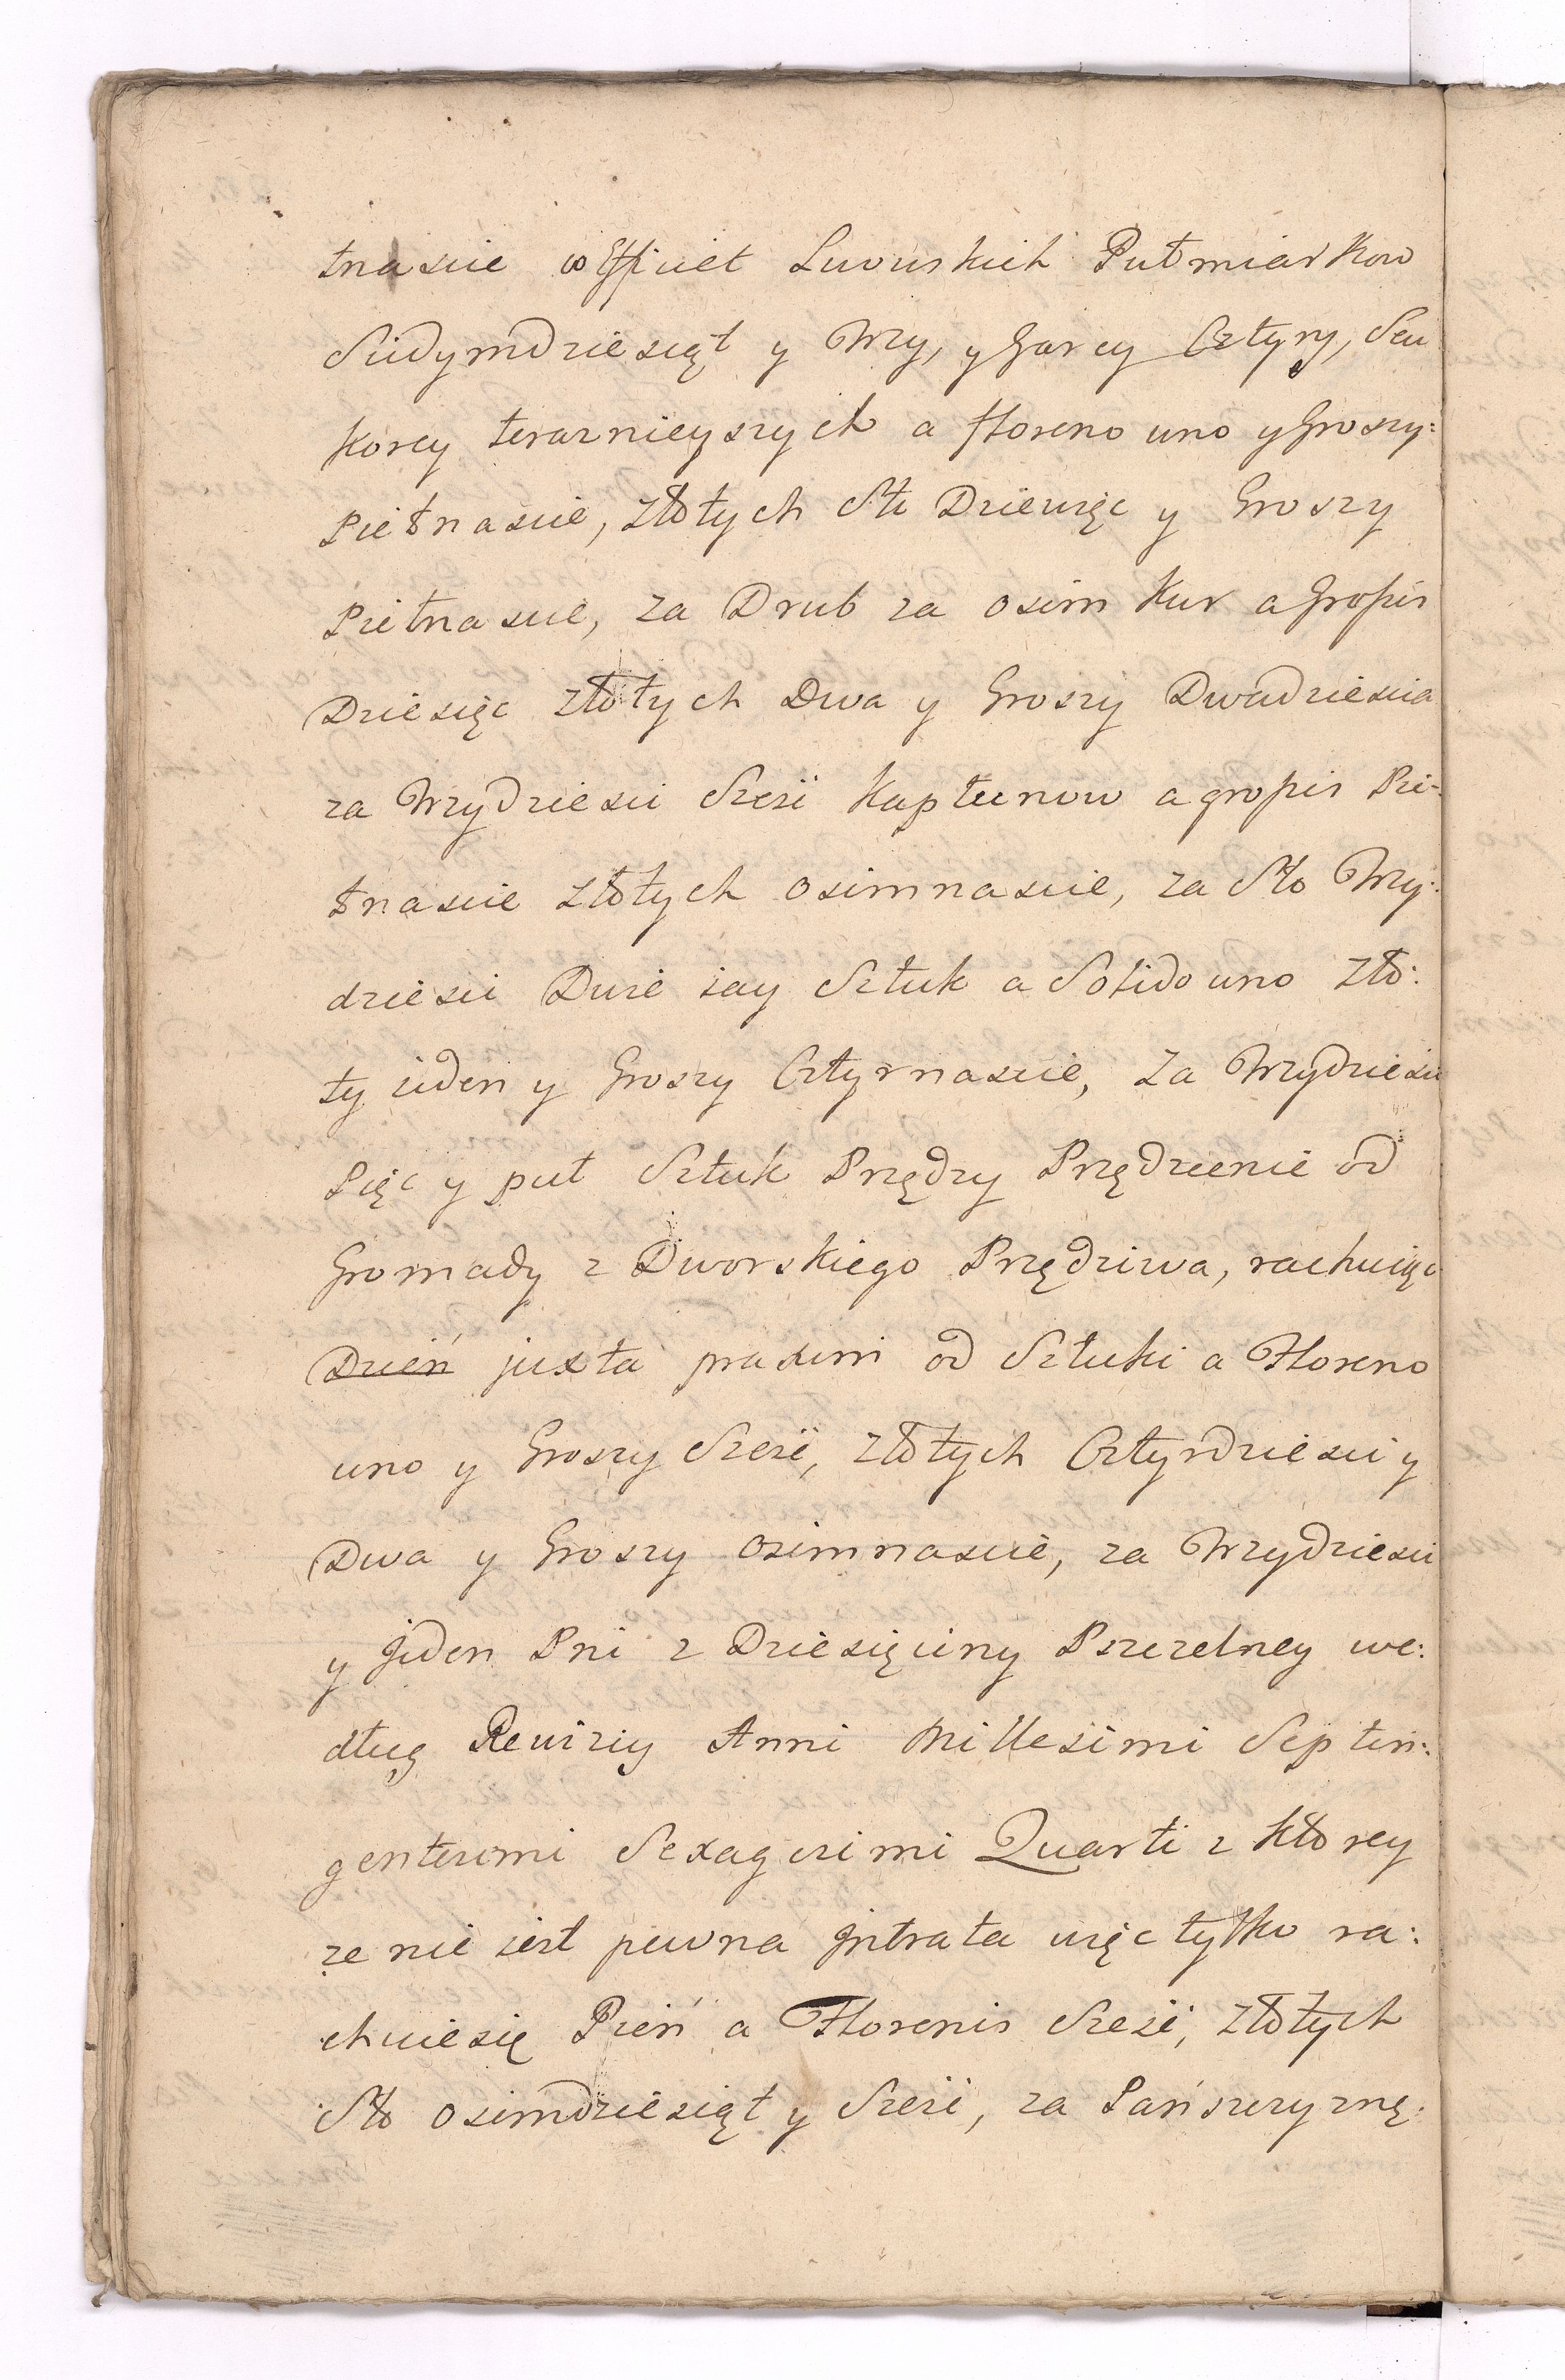 tnascie efficiet Lwowskich Pułmiarkow
Siedymdziesiąt y Trzy, y Garcy Cztyry, Seu
Korcy teraznieyszych a floreno uno y Groszy:
Piętnascie, złotych Sto Dziewięc y Groszy
Piętnascie, za Drub za osim kur a Grossis
Dziesięc złotych Dwa y Groszy Dwadziescia
za Trzydziesci Szesc Kapłunow a grossis Pię:
tnascie złotych osimnascie, za Sto Trzy:
dziesci Dwie iay Sztuk a Solido uno zło:
ty ieden y Groszy Cztyrnascie, za Trzydziesci
Pięc y puł Sztuk Przędzy Przędzenie od
Gromady z Dworskiego Przędziwa, rachuiąc
Dzień juxta praxim od Sztuki a Floreno
uno y Groszy Szesc, złotych Cztyrdziesci y
Dwa y Groszy osimnascie, za Trzydziesci
y Jeden Pni z Dziesięciny Pszczelney we:
dług Rewizij Anni Millesimi Septin:
gentesimi Sexagesimi Quarti z ktorey
ze nie iest pewna Jntrata więc tylko ra:
chuie się Pień a Florenis Szesc, złotych
Sto osimdziesiąt y Szesc, za Pańszczyznę: